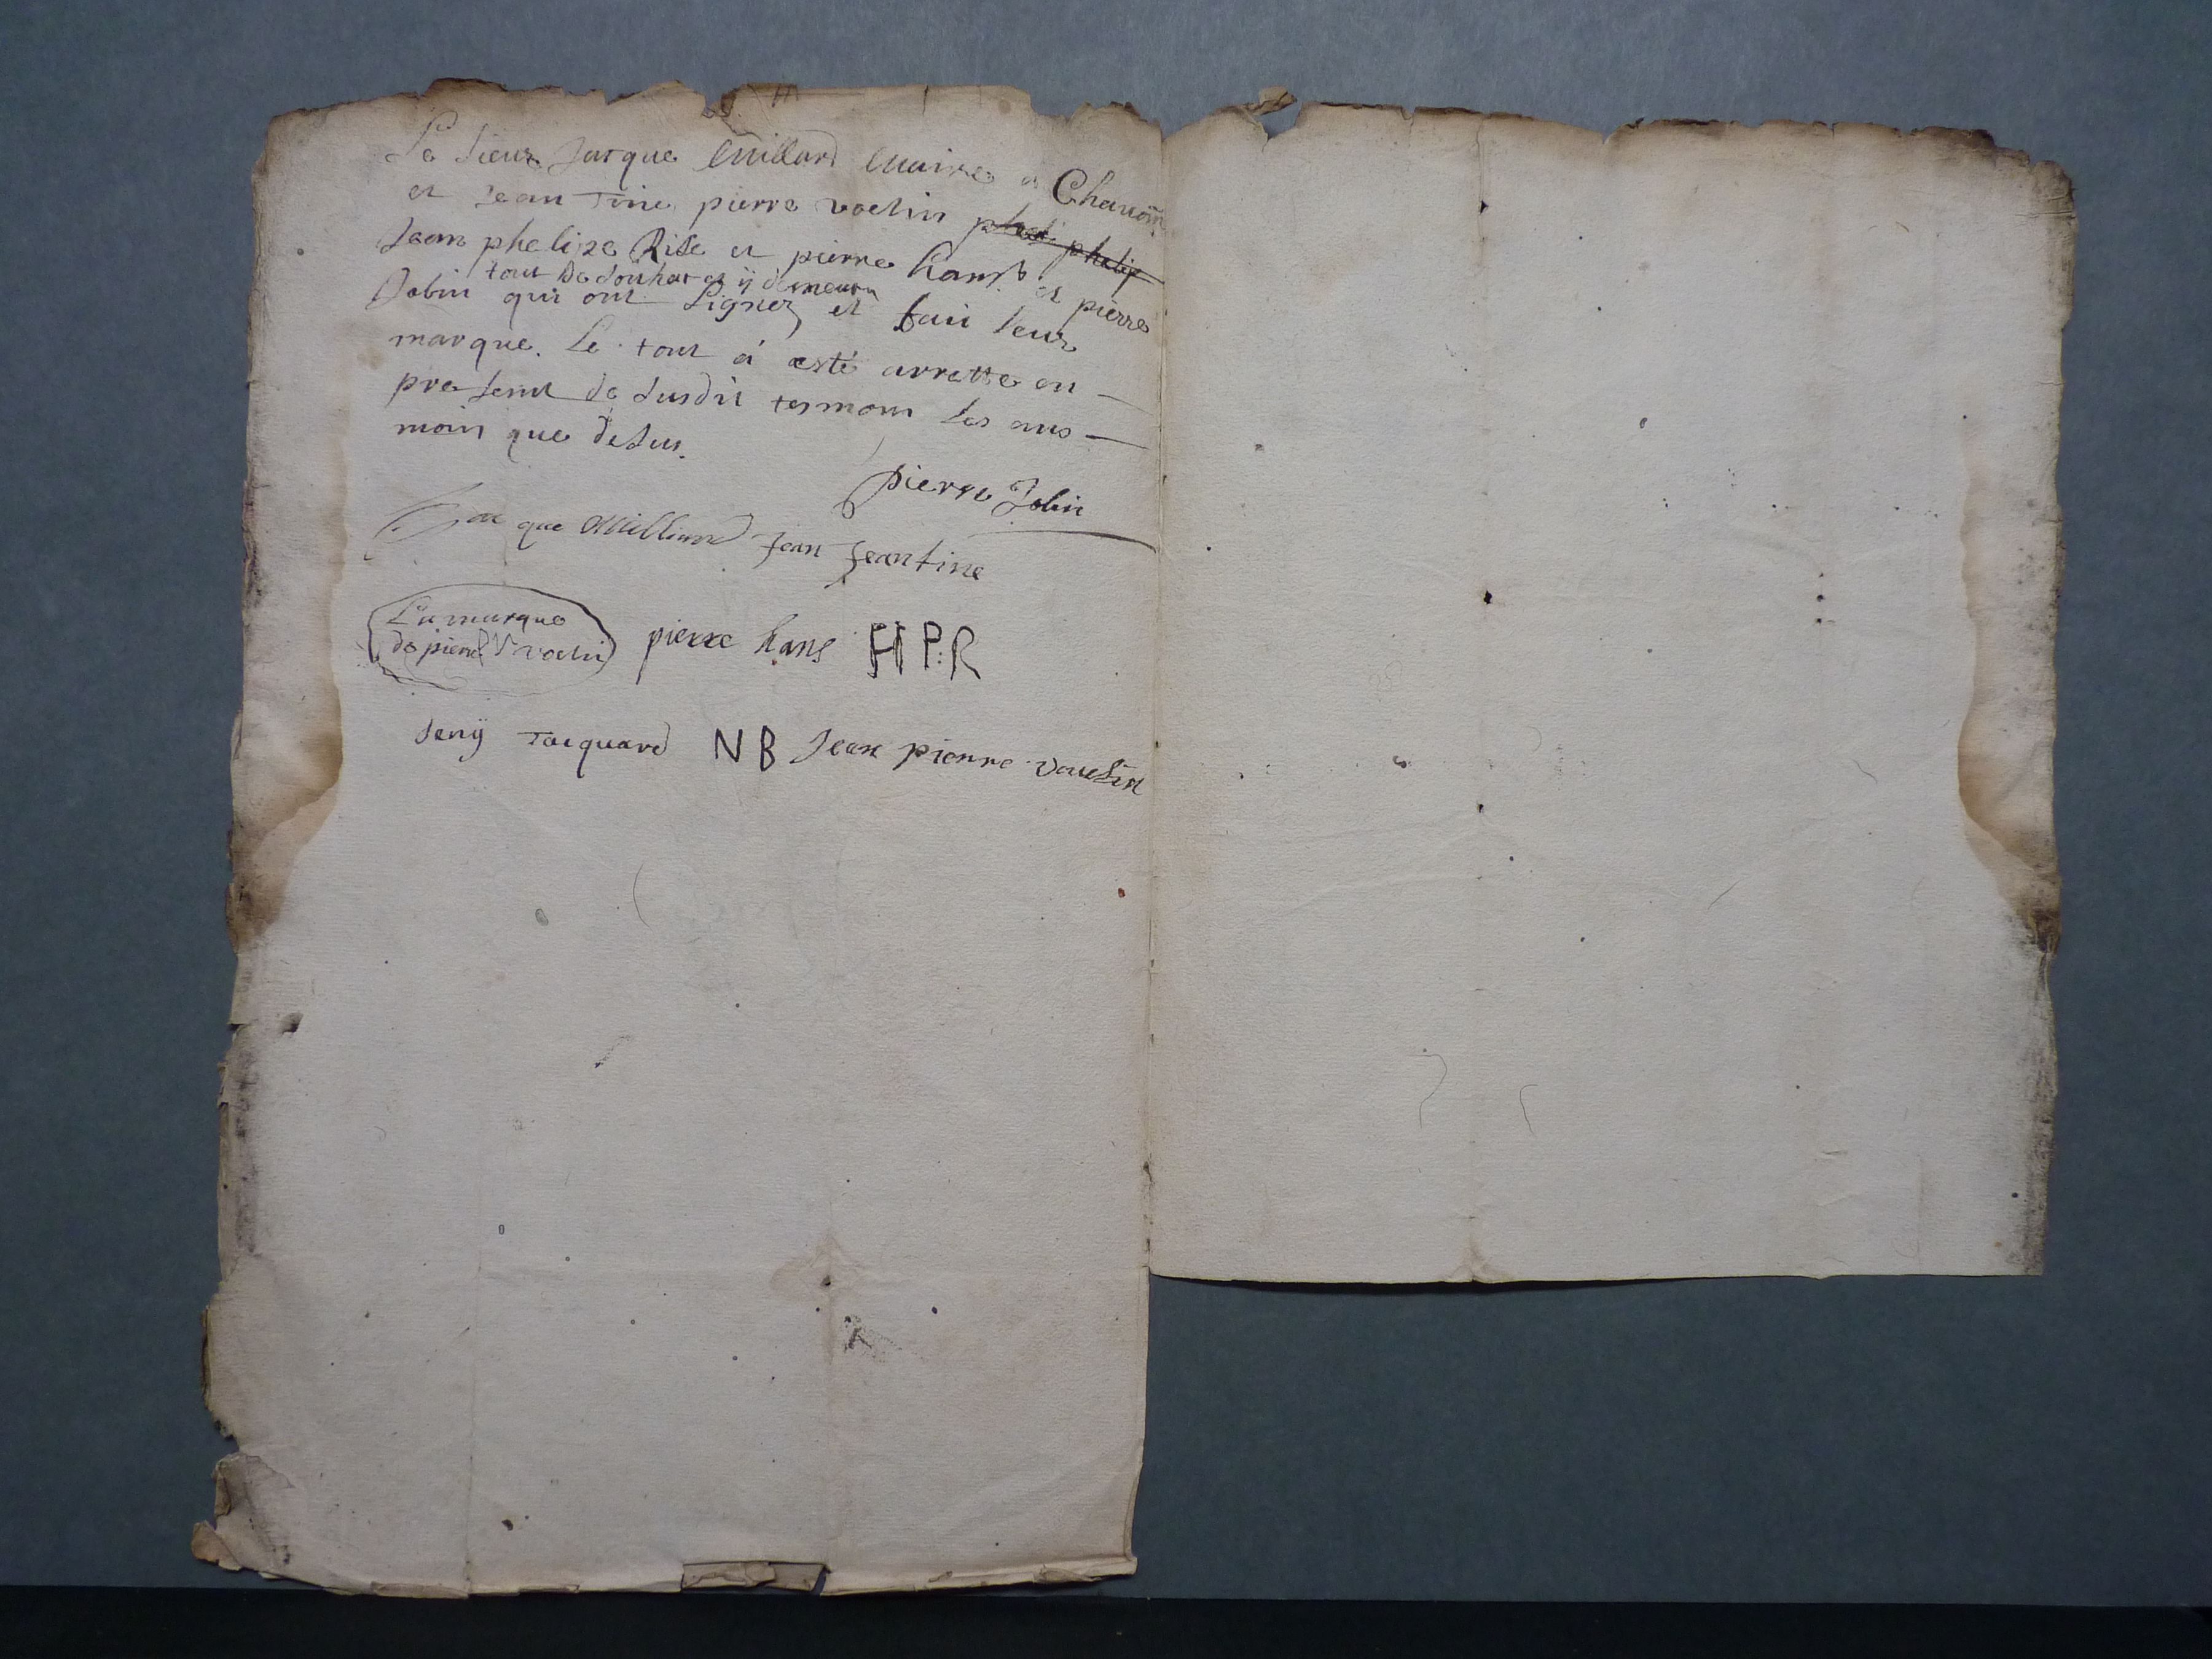 Le Sieur Jacque Millard Maire a Chavon
et Jean Tine pierre voelin phel phelip
Jean phelipe Rise et pierre hans et pierre
tout de Jonhat et ÿ demeur
Jobin qui ont Signez et fait leur
marque. Le tout à esté arrette en
presenc de Susdit tesmoin les ans
moin que desus.
pierre Jobin
Jacque Milliard Jean Jeantine
La marque
de pierre V voelin pierre hans HP:R
Jenÿ Jacquard NB Jean pierre Vouelin